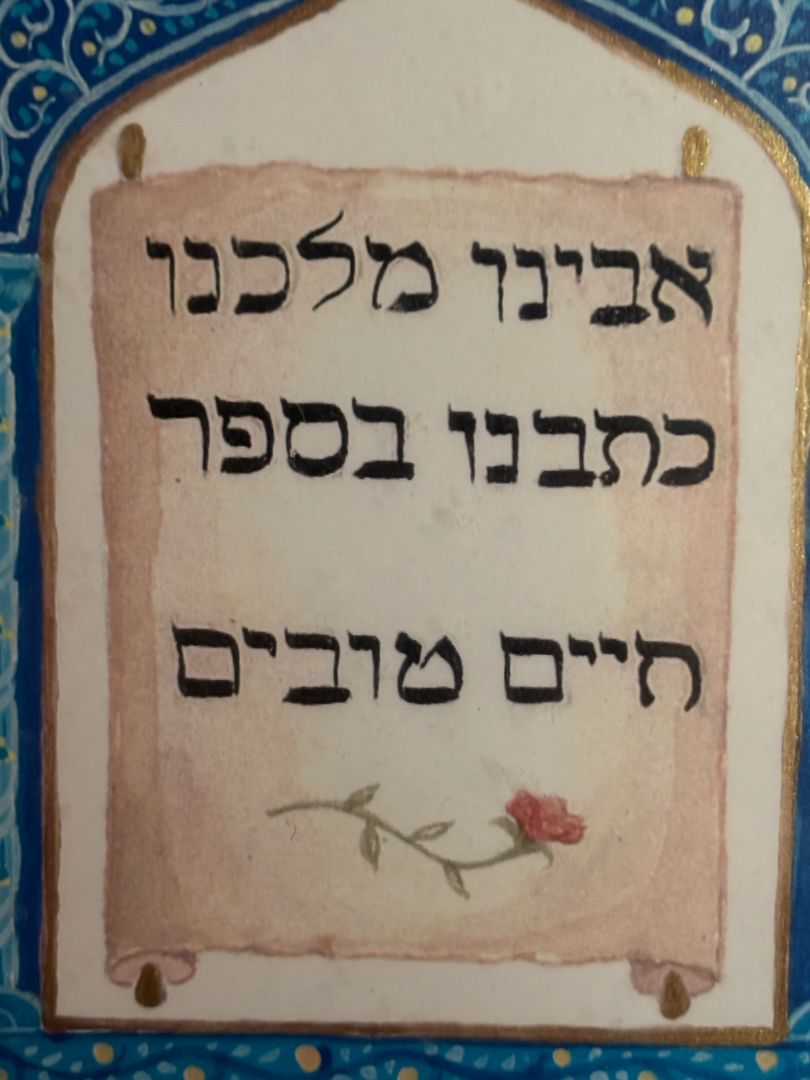 אבינו מלכנו
כתבנו בספר
חיים טובים